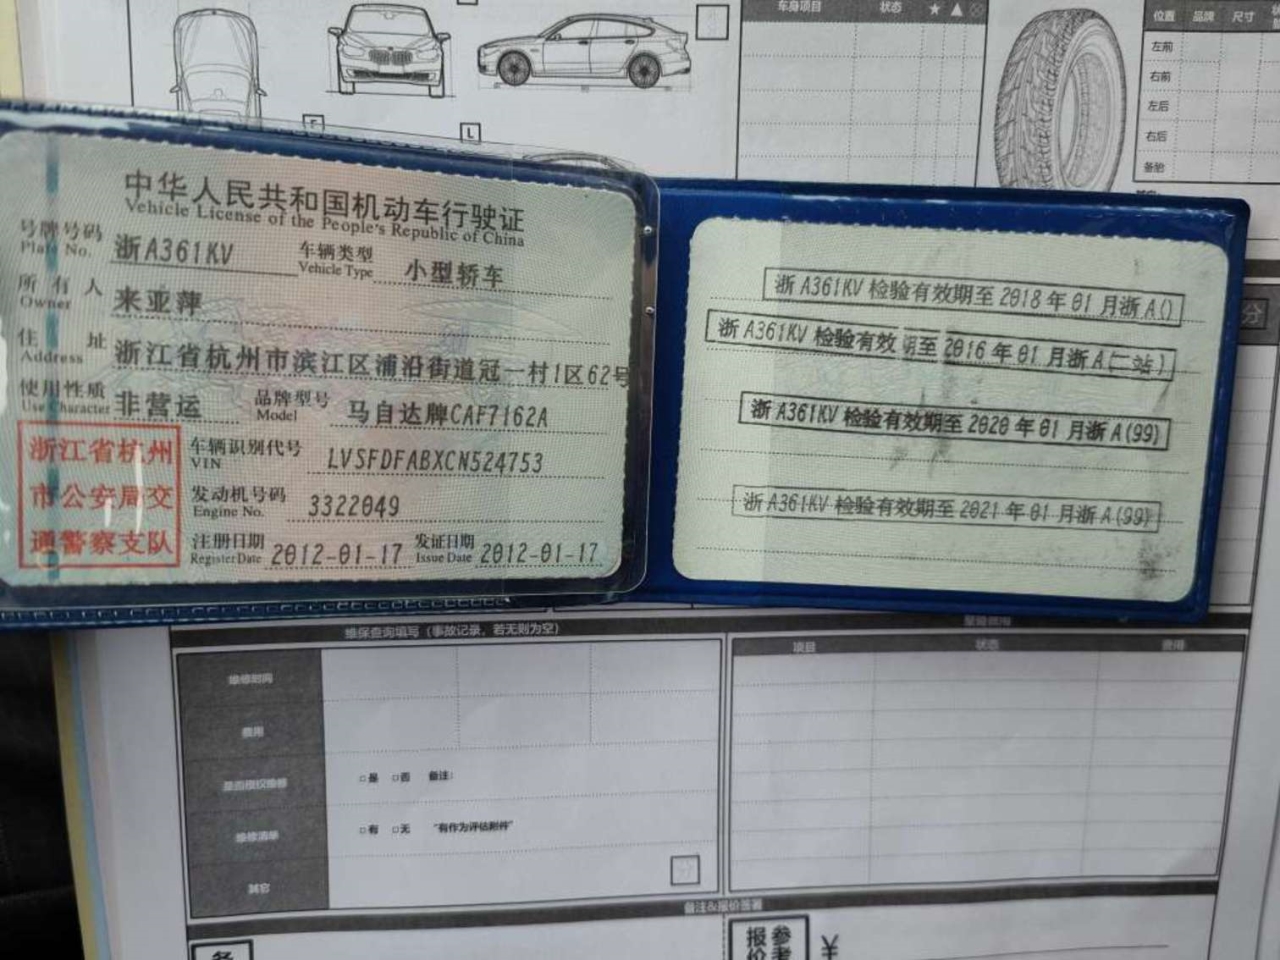 车身项目 状态 ★ ▲
位置 品牌 尺寸
左前
右前
左后
右后
备胎
F
L
中华人民共和国机动车行驶证
Vehicle License of the People's Republic of China
号牌号码 浙A361KV 车辆类型 小型轿车
Plate No. Vehicle Type
所有人 来亚萍
Owner
住址 浙江省杭州市滨江区浦沿街道冠一村1区62号
Address
使用性质 非营运 品牌型号 马自达牌CAF7162A
Use Character Model
浙江省杭州
市公安局交
通警察支队
车辆识别代号 LVSFDFABXCN524753
VIN
发动机号码 3322049
Engine No.
注册日期 2012-01-17 发证日期 2012-01-17
Register Date Issue Date
浙A361KV检验有效期至2018年01月浙A()
浙A361KV检验有效期至2016年01月浙A(二站)
浙A361KV检验有效期至2020年01月浙A(99)
浙A361KV检验有效期至2021年01月浙A(99)
分
维保查询填写（事故记录，若无则为空）
维修时间
费用
是否授权维修 □是 □否 备注：
维修清单 □有 □无 "有作为评估附件"
其它
分
项目 状态 费用
备注&报价签署
报参
价考
¥